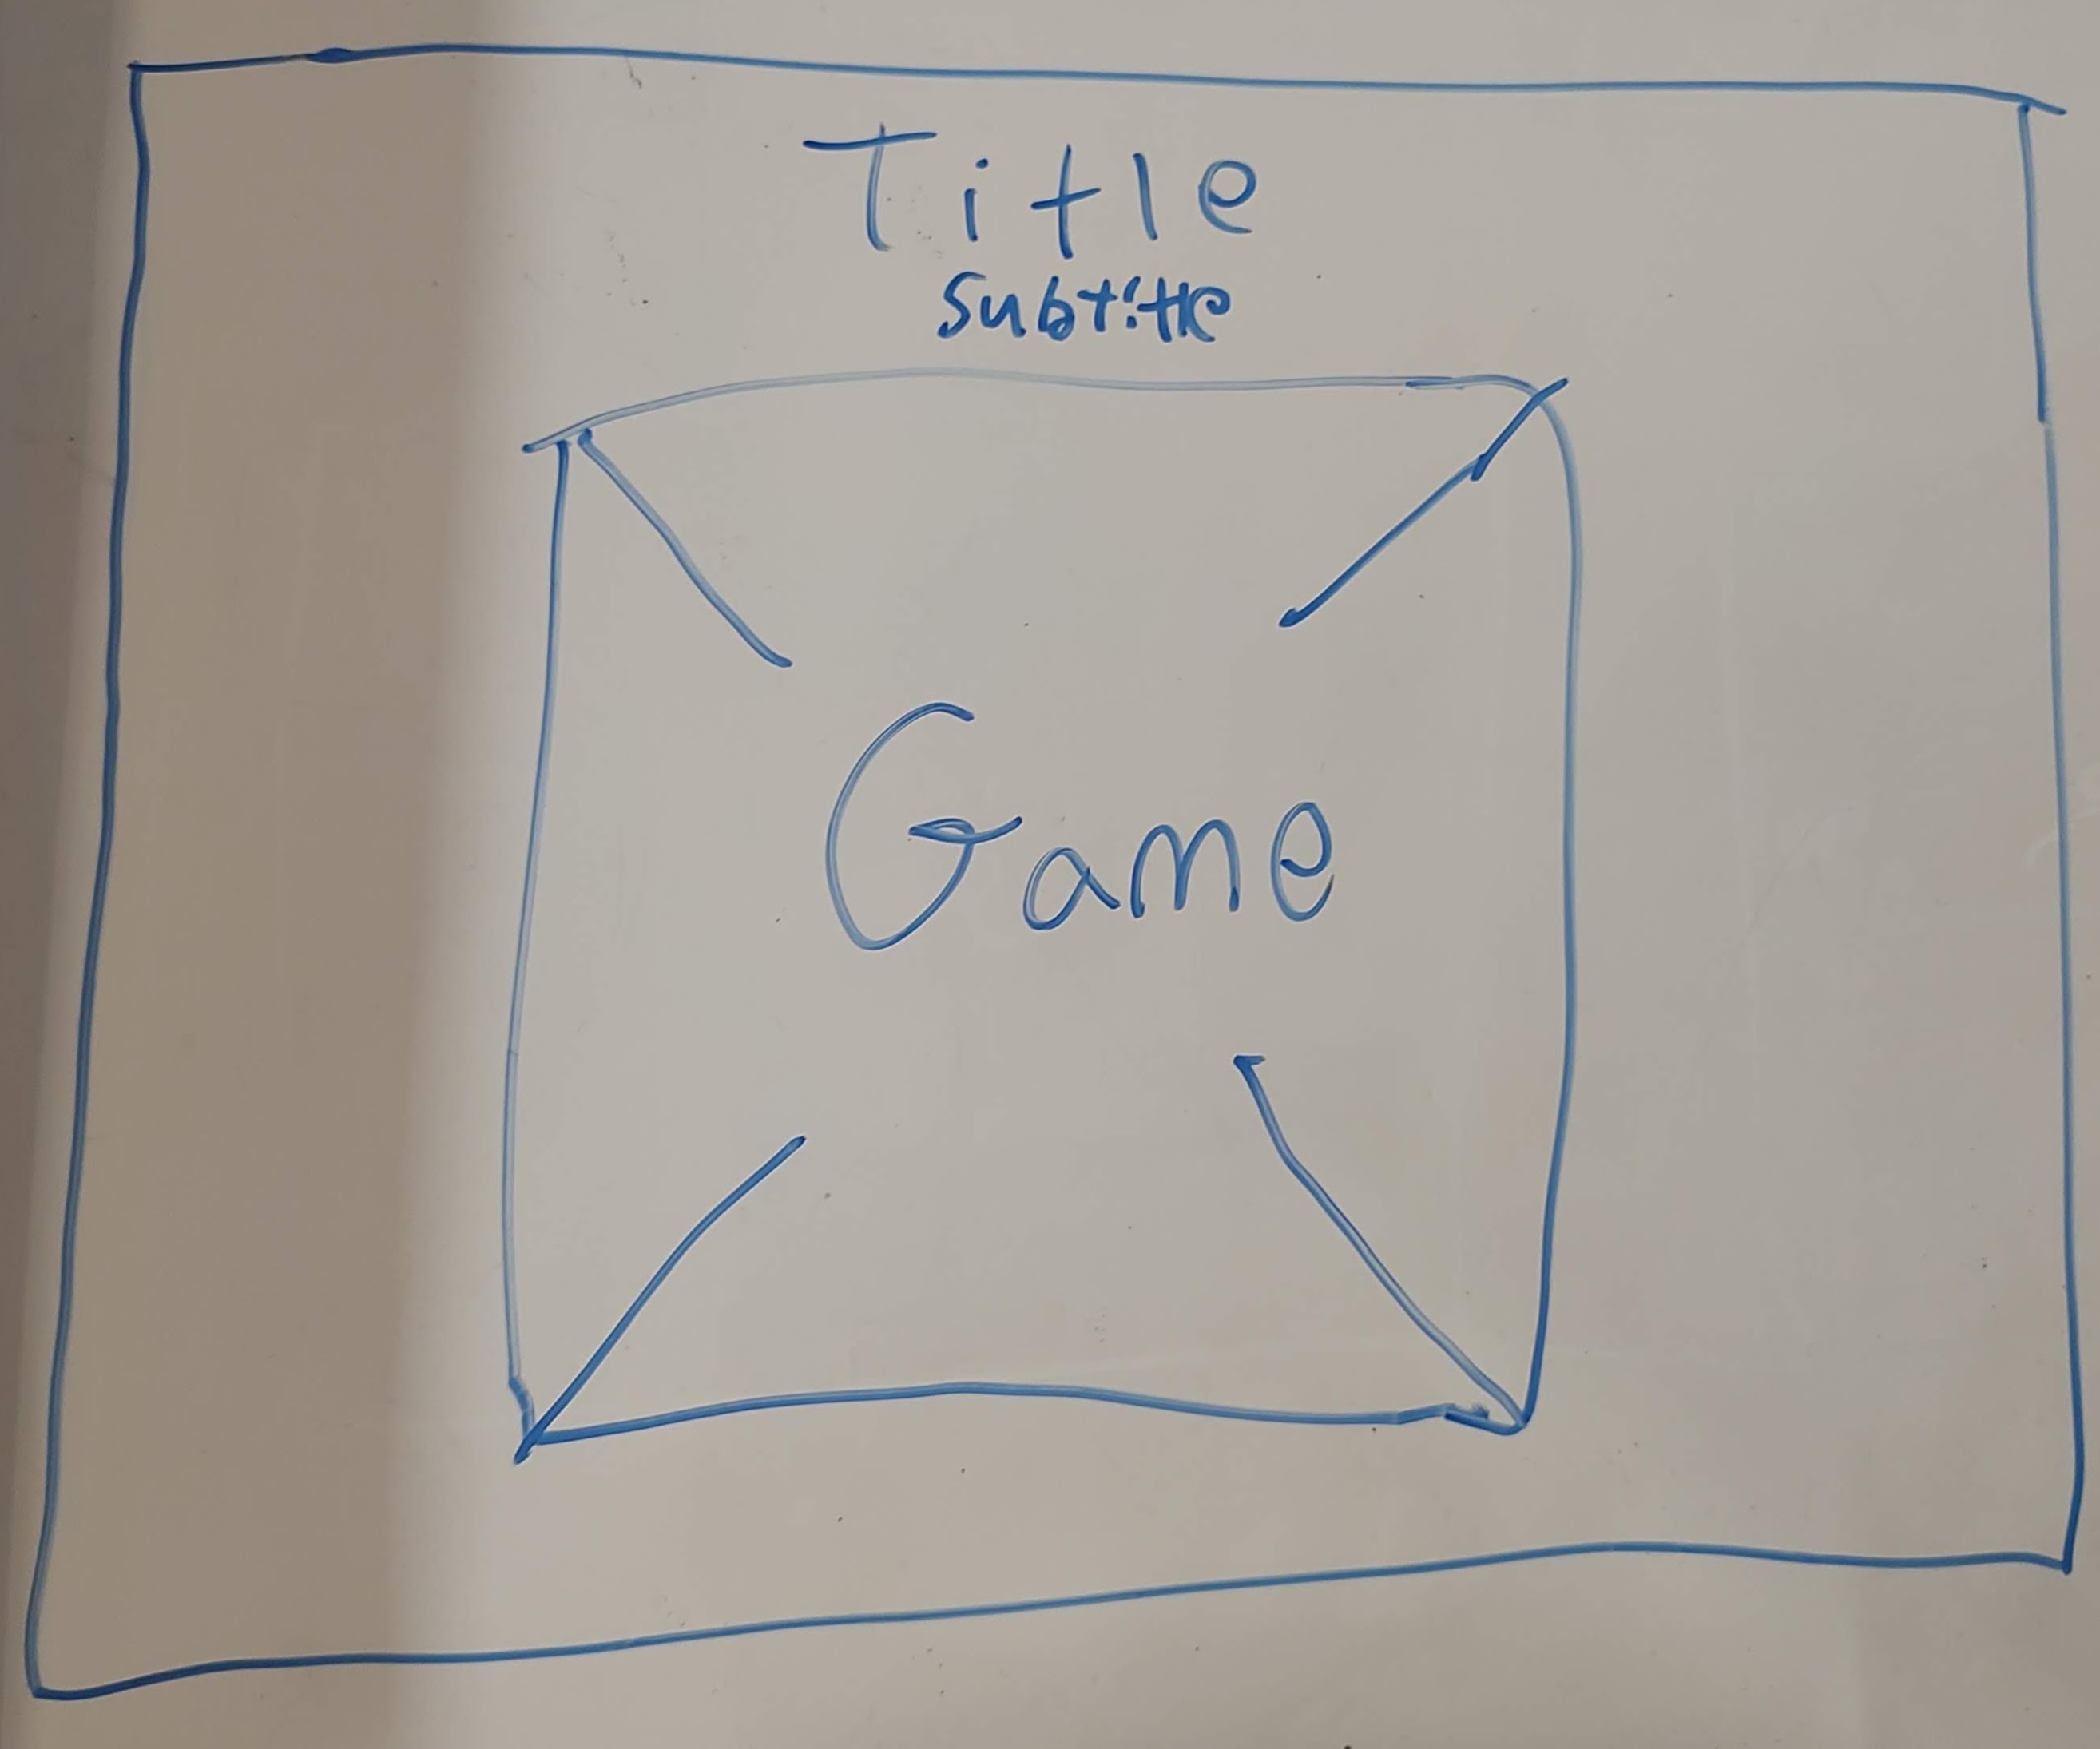 Title
Subtitle
Game